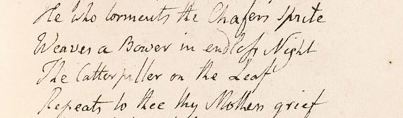 He who torments the Chafers Sprite
Weaves a Bower in endless Night
The Catterpiller on the Leaf
Repeats to thee thy Mothers grief